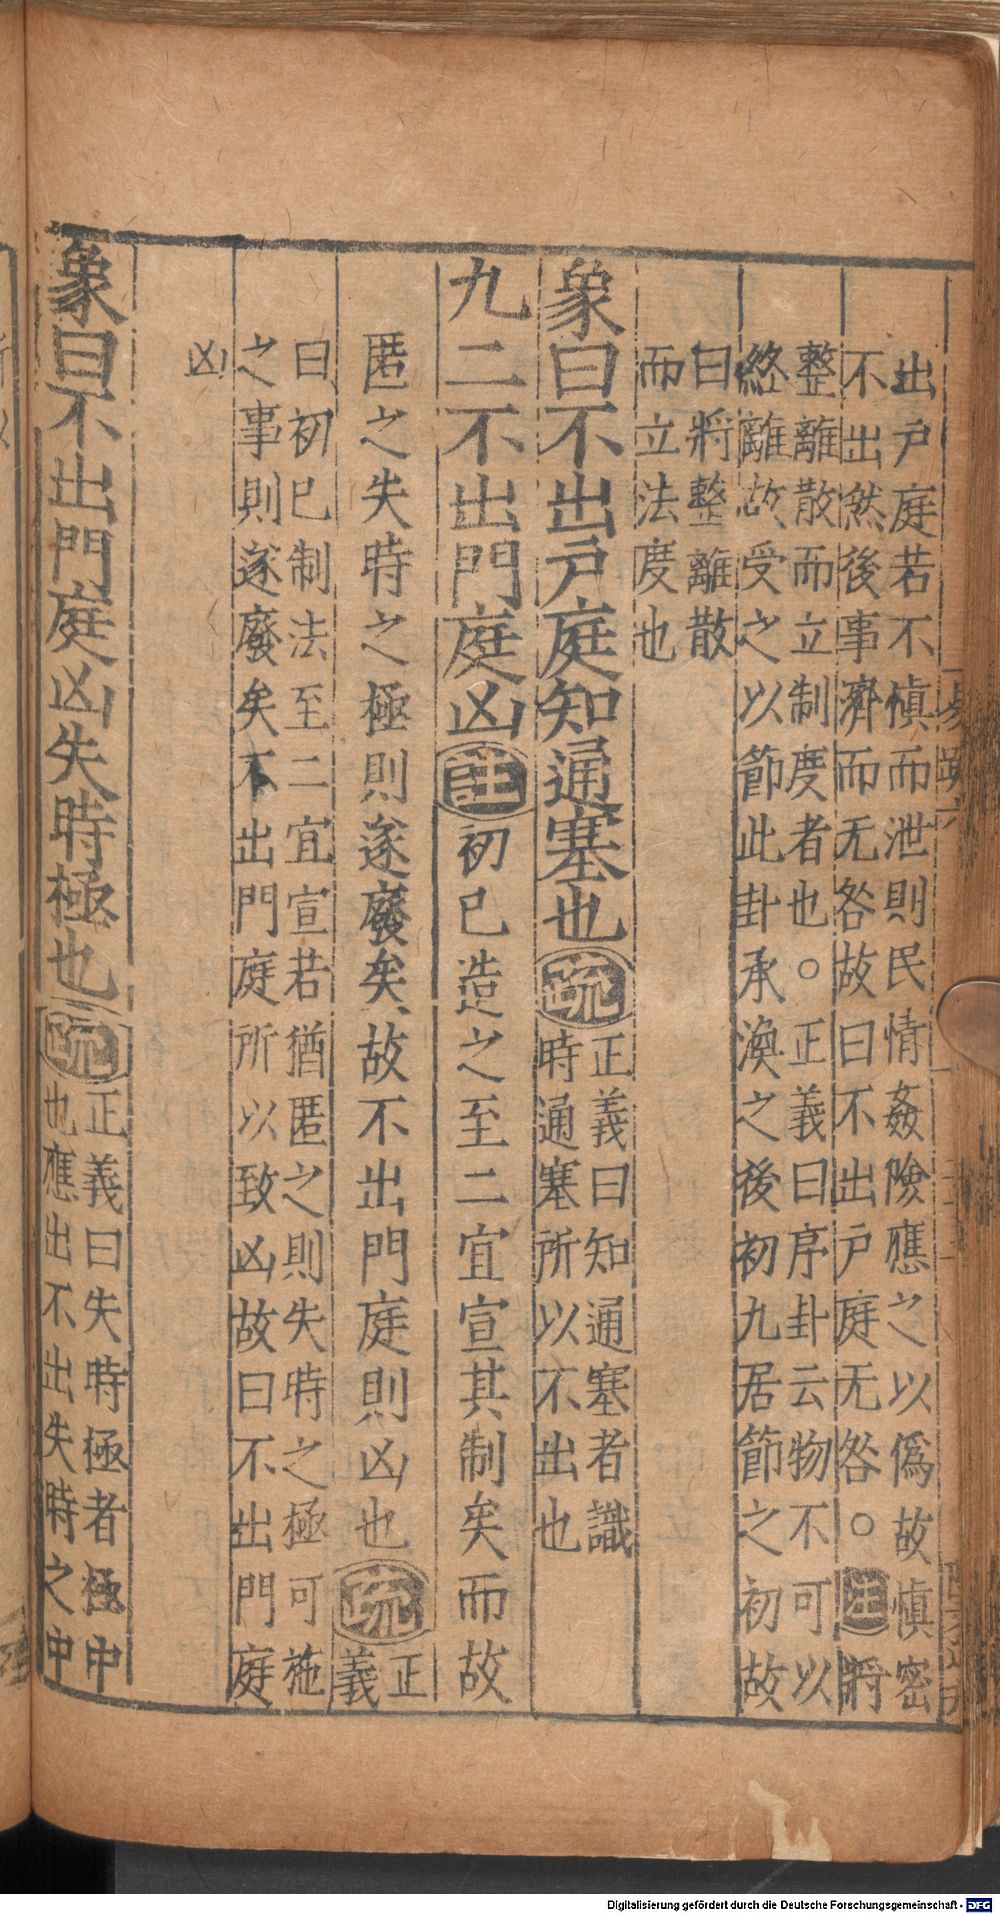 出戶庭若不愼而泄則民情姦險應之以僞故愼密
不出然後事濟而无咎故曰不出戶庭无咎○註將
整離散而立制度者也○正義曰序卦云物不可以
終離故受之以節此卦承渙之後初九居節之初故
曰將整離散
而立法度也
象曰不出戶庭知通塞也疏
正義曰知通塞者識
時通塞所以不出也
九二不出門庭凶註初已造之至二宜宣其制矣而故
匿之失時之極則遂廢矣故不出門庭則凶也疏
正
義
曰初已制法至二宜宣若猶匿之則失時之極可施
之事則遂廢矣不出門庭所以致凶故曰不出門庭
凶
象曰不出門庭凶失時極也疏
正義曰失時極者極中
也應出不出失時之中
Digitalisierung gefördert durch die Deutsche Forschungsgemeinschaft - DFG